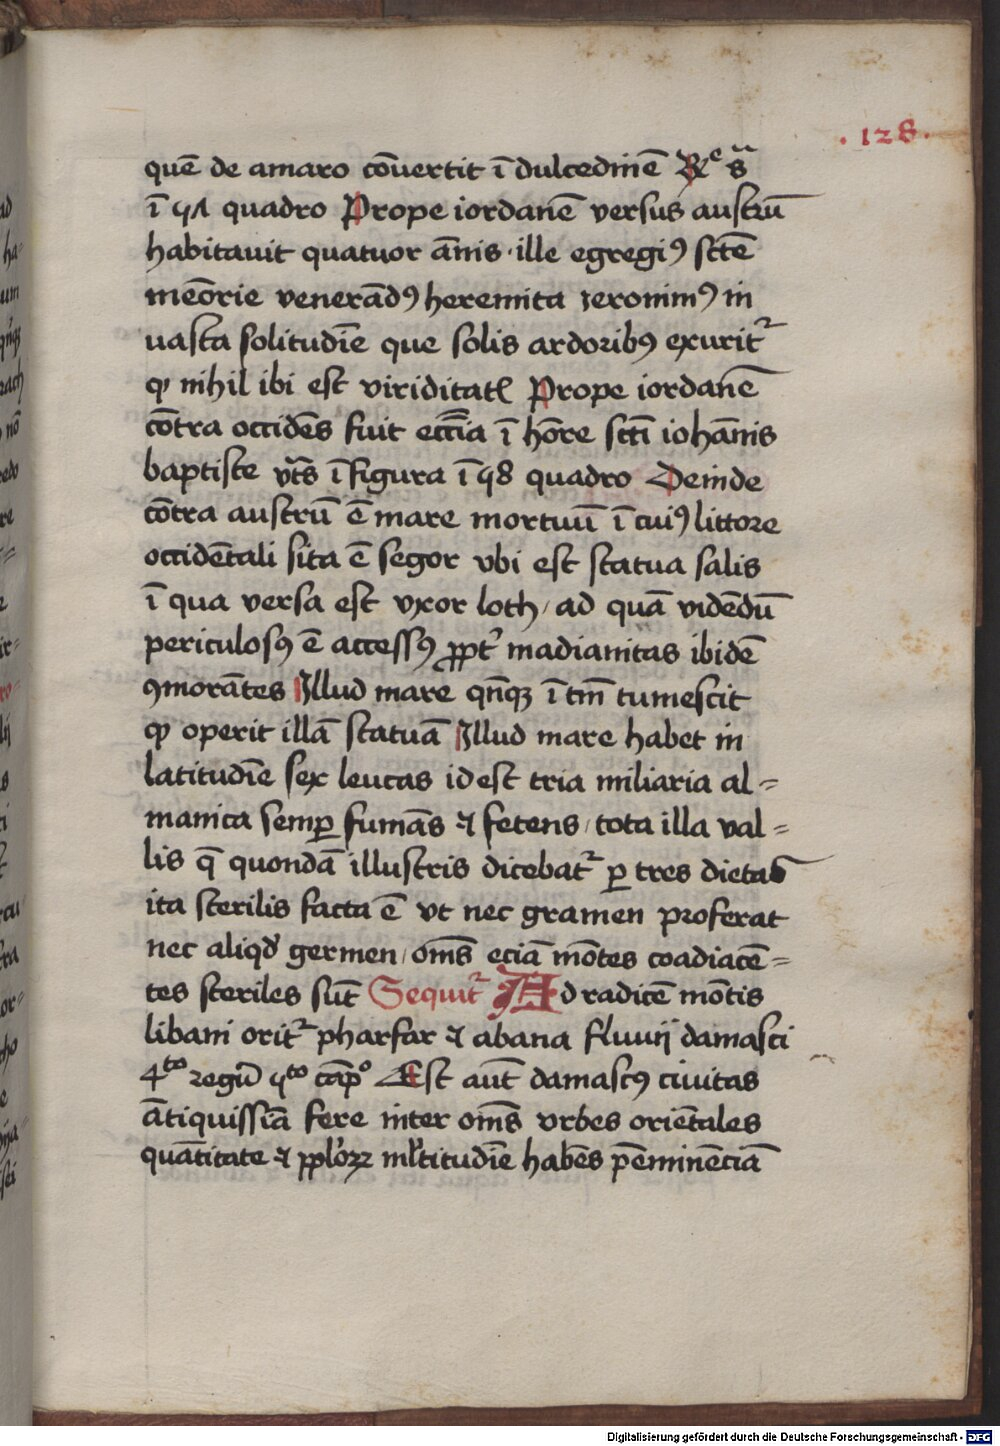 .128.
quē de amaro cōuertit ī dulcedinē Rᵉ sᵃ
ī 47 quadro Prope iordanē versus austrū
habitauit quatuor ānis · ille egregiꝰ sctē
meōrie venerādꝰ heremita ieronimꝰ in
uasta solitudīe que solis ardoribꝰ exurit᷑
qꝫ nihil ibi est viriditatꝭ Prope iordanē
cōtra occidēs fuit eccīa ī hōre sctī iohānis
baptiste vt͞s ī figura ī 48 quadro Deinde
cōtra austrū ē mare mortuū ī cuiꝰ littore
occidētali sita ē segor vbi est statua salis
ī qua versa est vxor loth / ad quā vidēdū
periculosꝰ ē accessꝰ ꝓpt᷑ madianitas ibidē
ꝯmorātes Illud mare qn̄qꝫ ī tm̄ tumescit
qꝫ operit illā statuā Illud mare habet in
latitudīe sex leucas id est tria miliaria al=
manica semꝑ fumās ⁊ fetens / tota illa val=
lis q̄ quondā illustris dicebat᷑ ꝑ tres dietas
ita sterilis facta ē vt nec gramen proferat
nec aliqd᷑ germen / om̄s eciā mōtes coadiacē=
tes steriles sūt Sequit᷑ Ad radicē mōtis
libani orit᷑ pharfar ⁊ abana fluuij damasci
4ᵗᵒ regū 4ᵗᵒ cāpᵒ Est aūt damascꝰ ciuitas
ātiquissīa fere inter om̄s vrbes oriētales
quātitate ⁊ pplōꝝ ml̄titudīe habēs p̄eminēciā
Digitalisierung gefördert durch die Deutsche Forschungsgemeinschaft - DFG